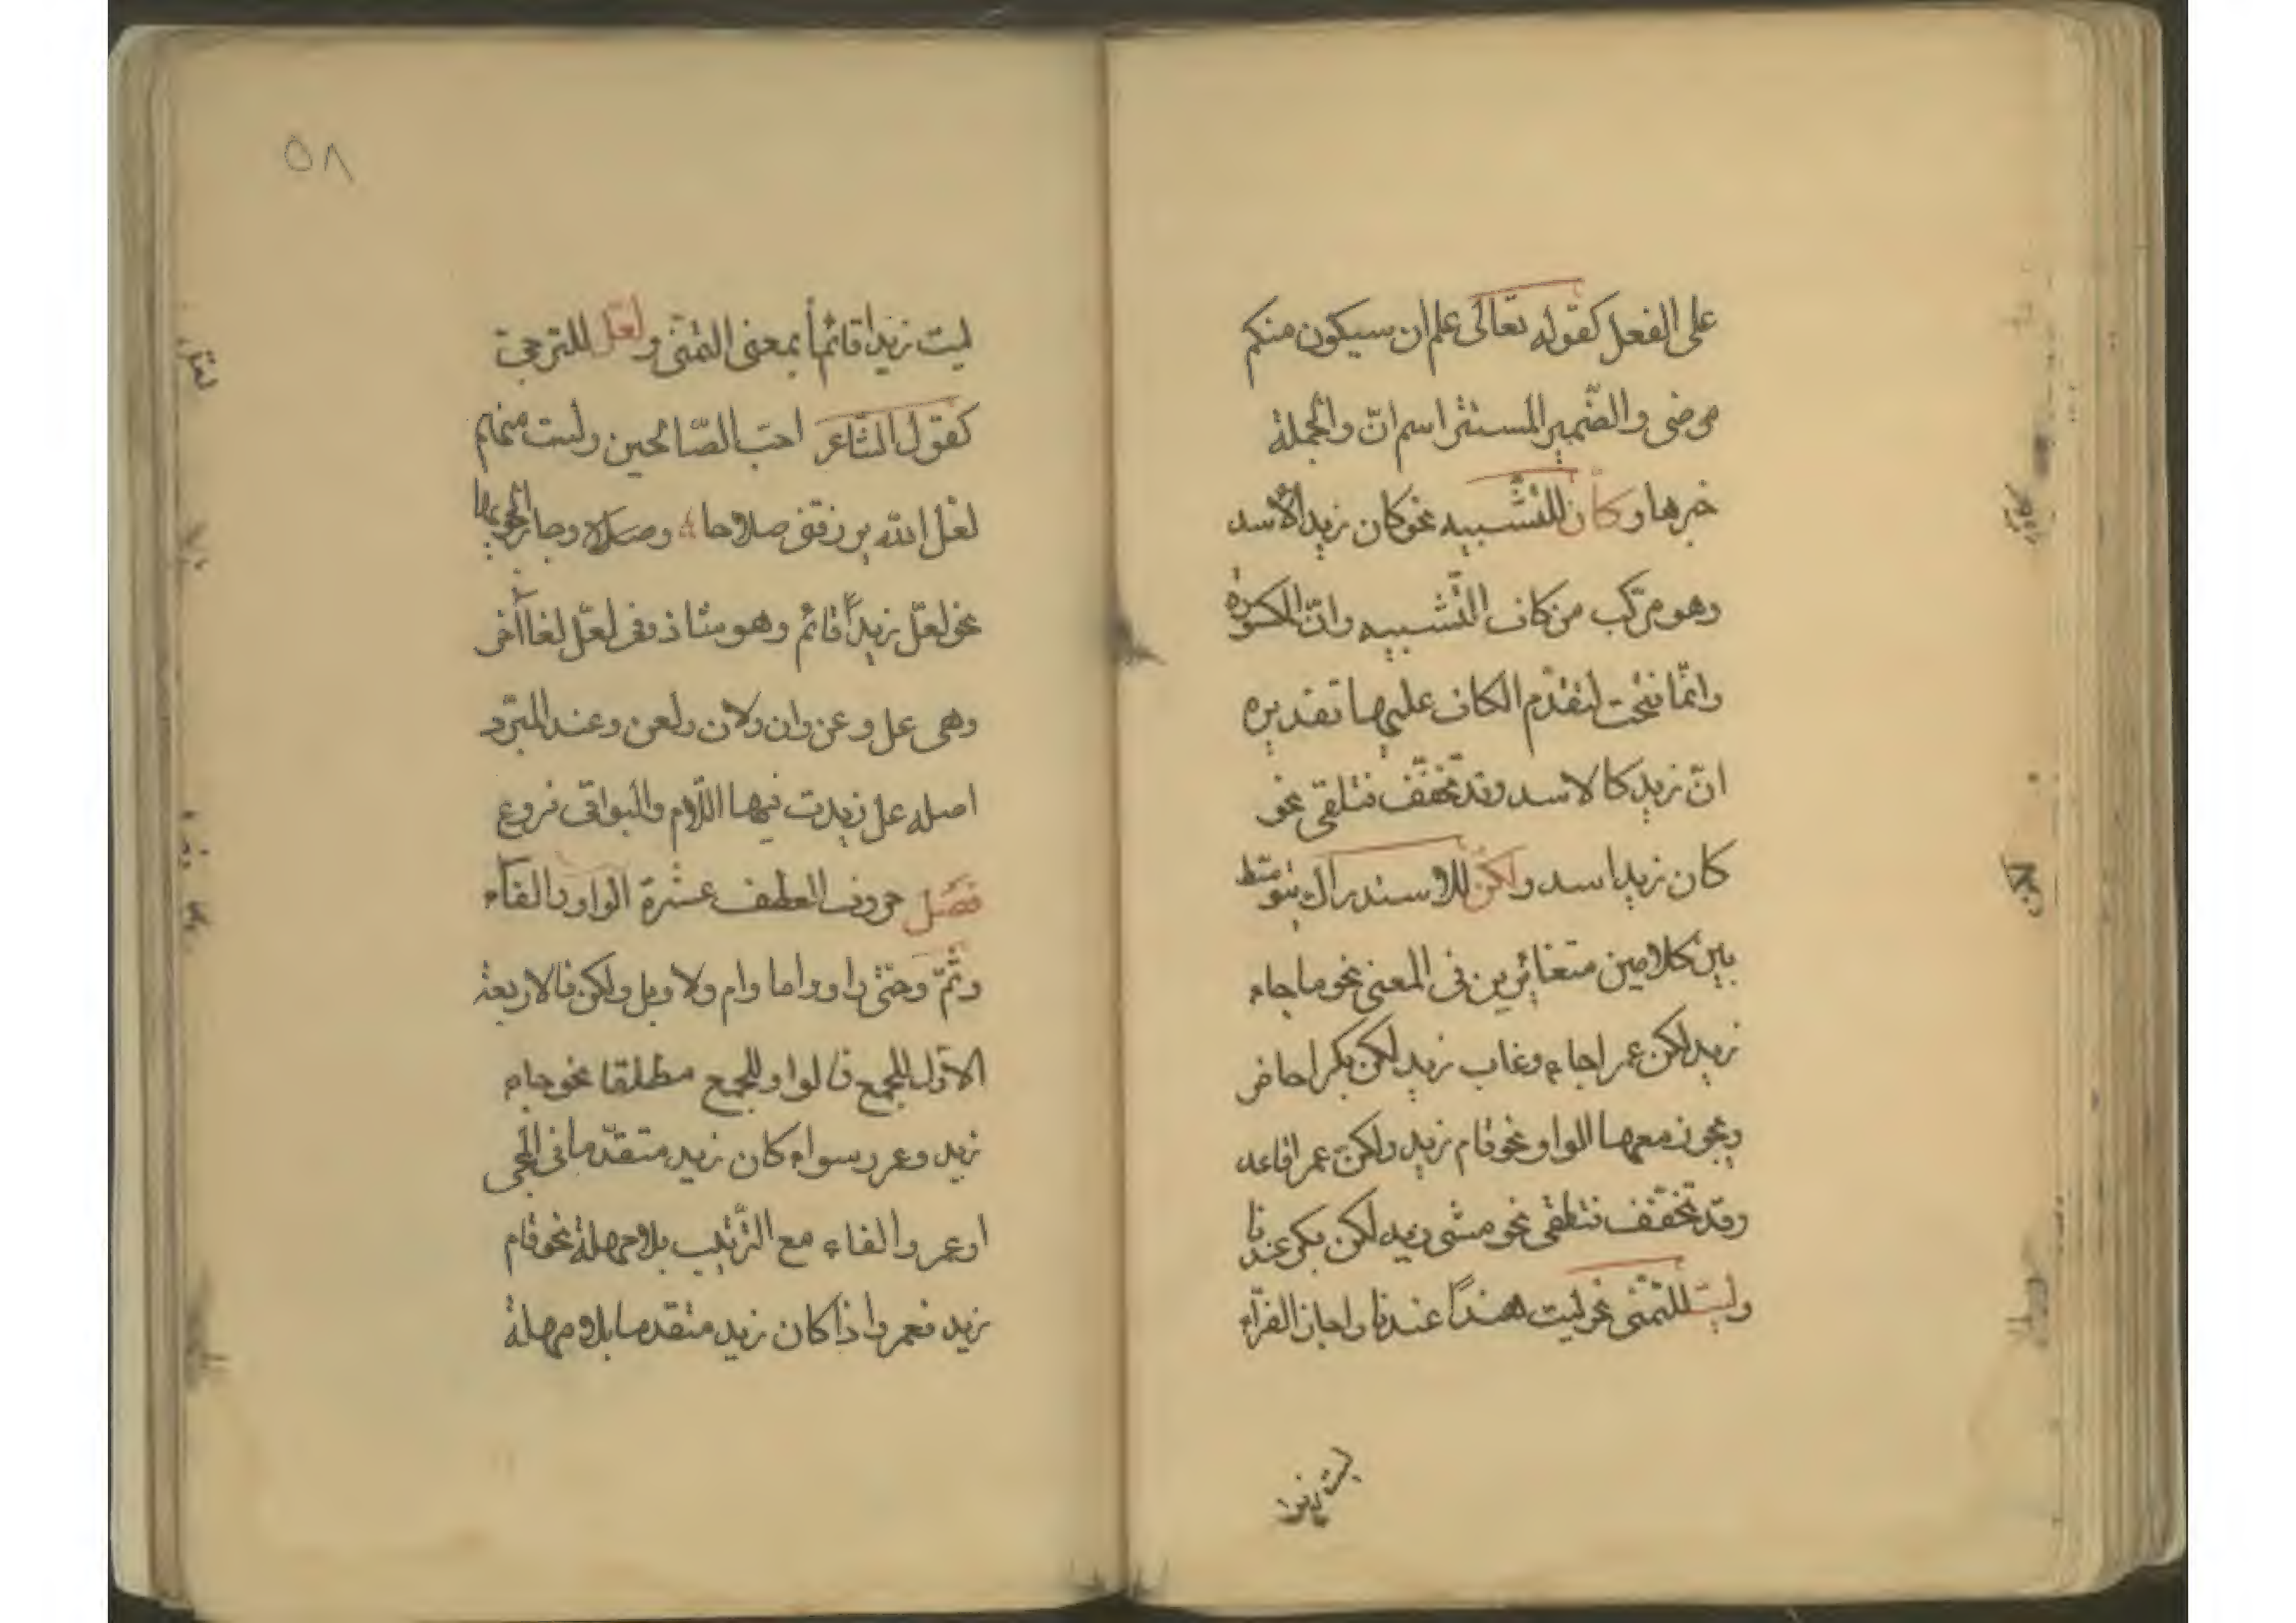 على الفعل كقوله تعالى علم ان سيكون منكم
مرضى والضّمير المستتر اسم انّ والجملة
خبرها وكأن للتّشبيه نحو كان زيد الأسد
وهو مركّب من كاف التّشبيه وانّ المكسورة
وانّما فتحت لتقدّم الكاف عليها تقديره
انّ زيد كالاسد وقد تخفّف فتلقى نحو
كان زيد اسد ولكن للاستدراك يتوسّط
بين كلامين متغائرين فى المعنى نحو ما جاء
زيد لكن عمرا جاء وغاب زيد لكن بكرا حاضر
ويجوز معها الواو نحو قام زيد ولكنّ عمرا قاعد
وقد تخفّف فتلقى نحو مشى زيد لكن بكر عندنا
وليت للتّمنى نحو ليت هنداً عندنا واجاز الفرّاء
ليت زيدا
٥٨
ليت زيدا قائماً بمعنى اتمنّى ولعلّ للترجىّ
كقول الشاعر احبّ الصّالحين ولست منهم
لعلّ الله يرزقنى صلاحا وجاز الجرّ بها
نحو لعلّ زيدٍ قائم وهو شاذ وفى لعلّ لغاآخر
وهى عل وعن وان ولان ولعن وعند المبرّد
اصله عل زيدت فيها اللّام والبواقى فروع
فصل حروف العطف عشرة الواو والفآء
وثمّ وحتّى واو واما وام ولا وبل ولكن فالاربعة
الاوّل للجمع فالواو للجمع مطلقا نحو جاء
زيد وعمرو سواء كان زيد متقدّما فى المجى
او عمرو الفاء مع التّرتيب بلا مهلة نحو قام
زيد فعمرو اذا كان زيد متقدما بلا مهلة